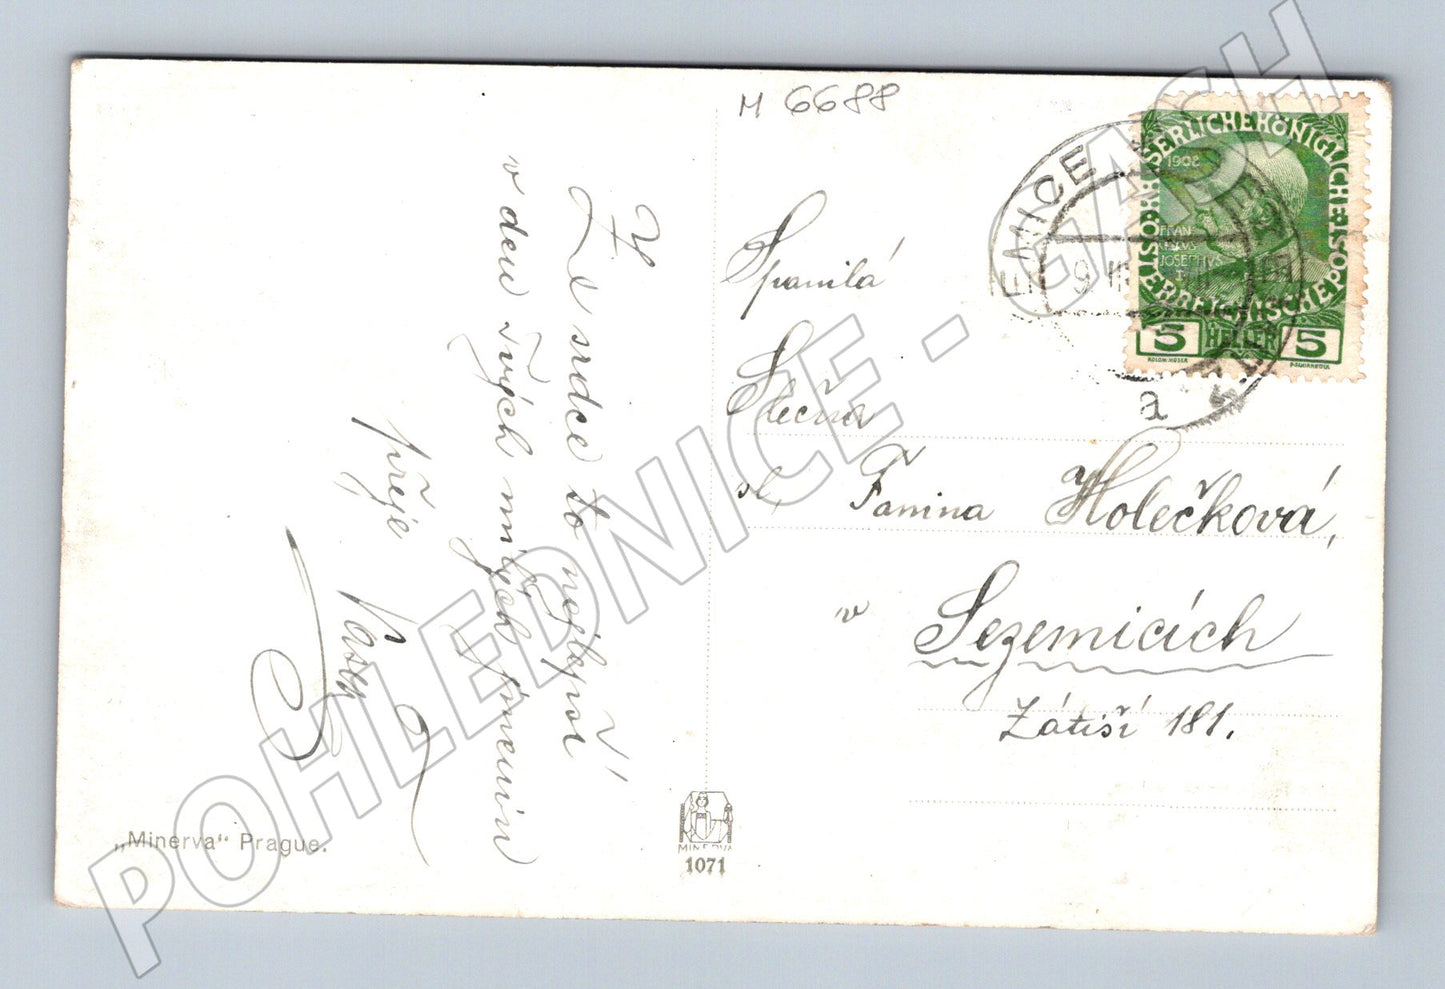 M 6688
Ze srdce to nejlepší
v den Tvých milých jmenin
přeje
Spanilá
Slečna
sl. Fanina Holečková,
v Sezemicích
Zátiší 181.
KAISERLICHE KÖNIGLICHE
ÖSTERREICHISCHE POST
1908
FRAN
CISCVS
JOSEPHVS
I
5 HELLER 5
9. III
a
„Minerva“ Prague.
MINERVA
1071
POHLEDNICE - GASH